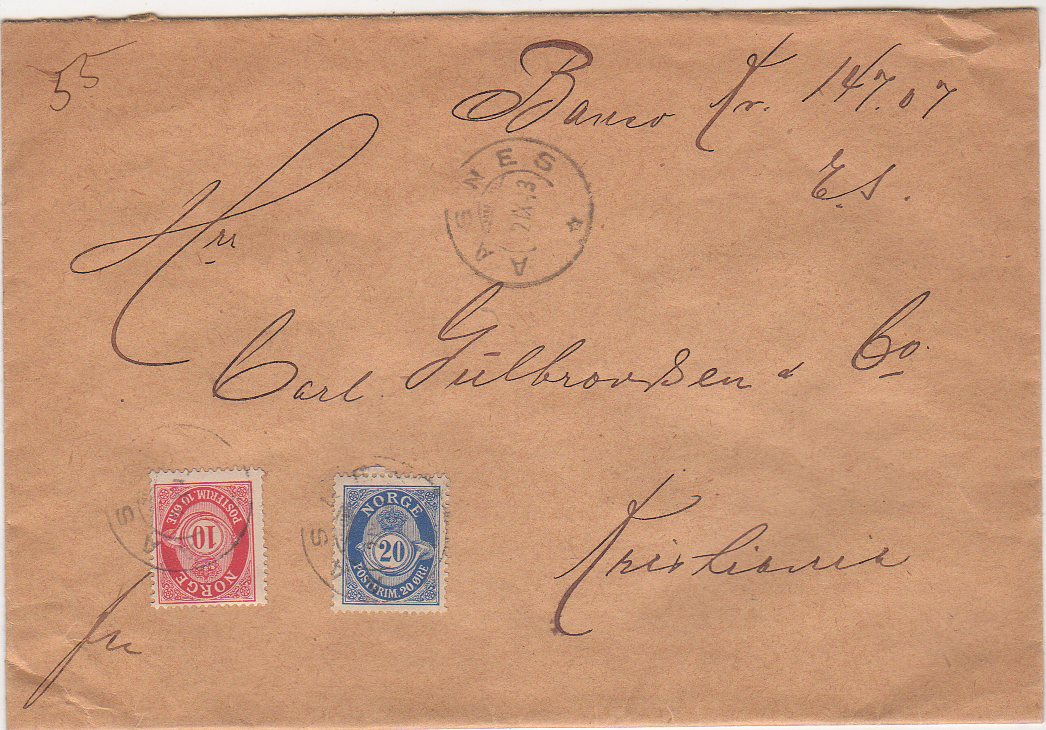 55
Banco Kr. 147.07
E.S.
AASNES
Hrr
Carl Gulbrandsen & Co.
NORGE
10
POSTFRIM. 10 ØRE
NORGE
20
POSTFRIM. 20 ØRE
Kristiania
fr